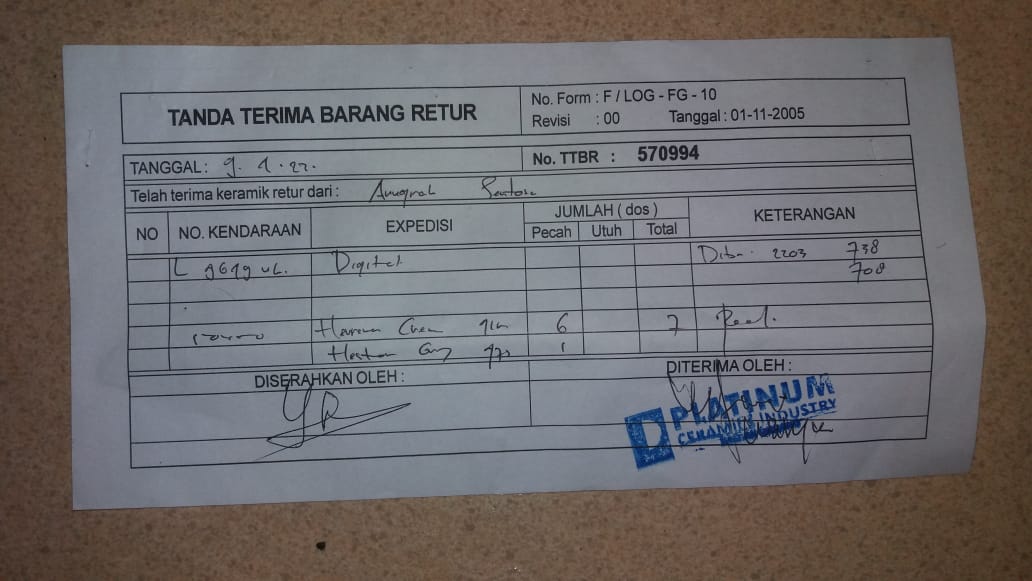 TANDA TERIMA BARANG RETUR
No. Form : F / LOG - FG - 10
Revisi : 00 Tanggal : 01-11-2005
TANGGAL : 9. 1. 22. No. TTBR : 570994
Telah terima keramik retur dari : Anugrah Sentosa
NO NO. KENDARAAN EXPEDISI JUMLAH ( dos ) KETERANGAN
Pecah Utuh Total
L 9619 UL. Digital 2203 738
708
6 7
1
DISERAHKAN OLEH : DITERIMA OLEH :
PLATINUM
CERAMIC INDUSTRY